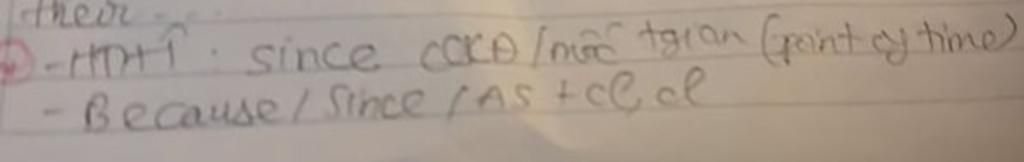 their
- HTHT : since CCKĐ / mốc tgian (point of time)
- Because / Since / AS + cl, cl